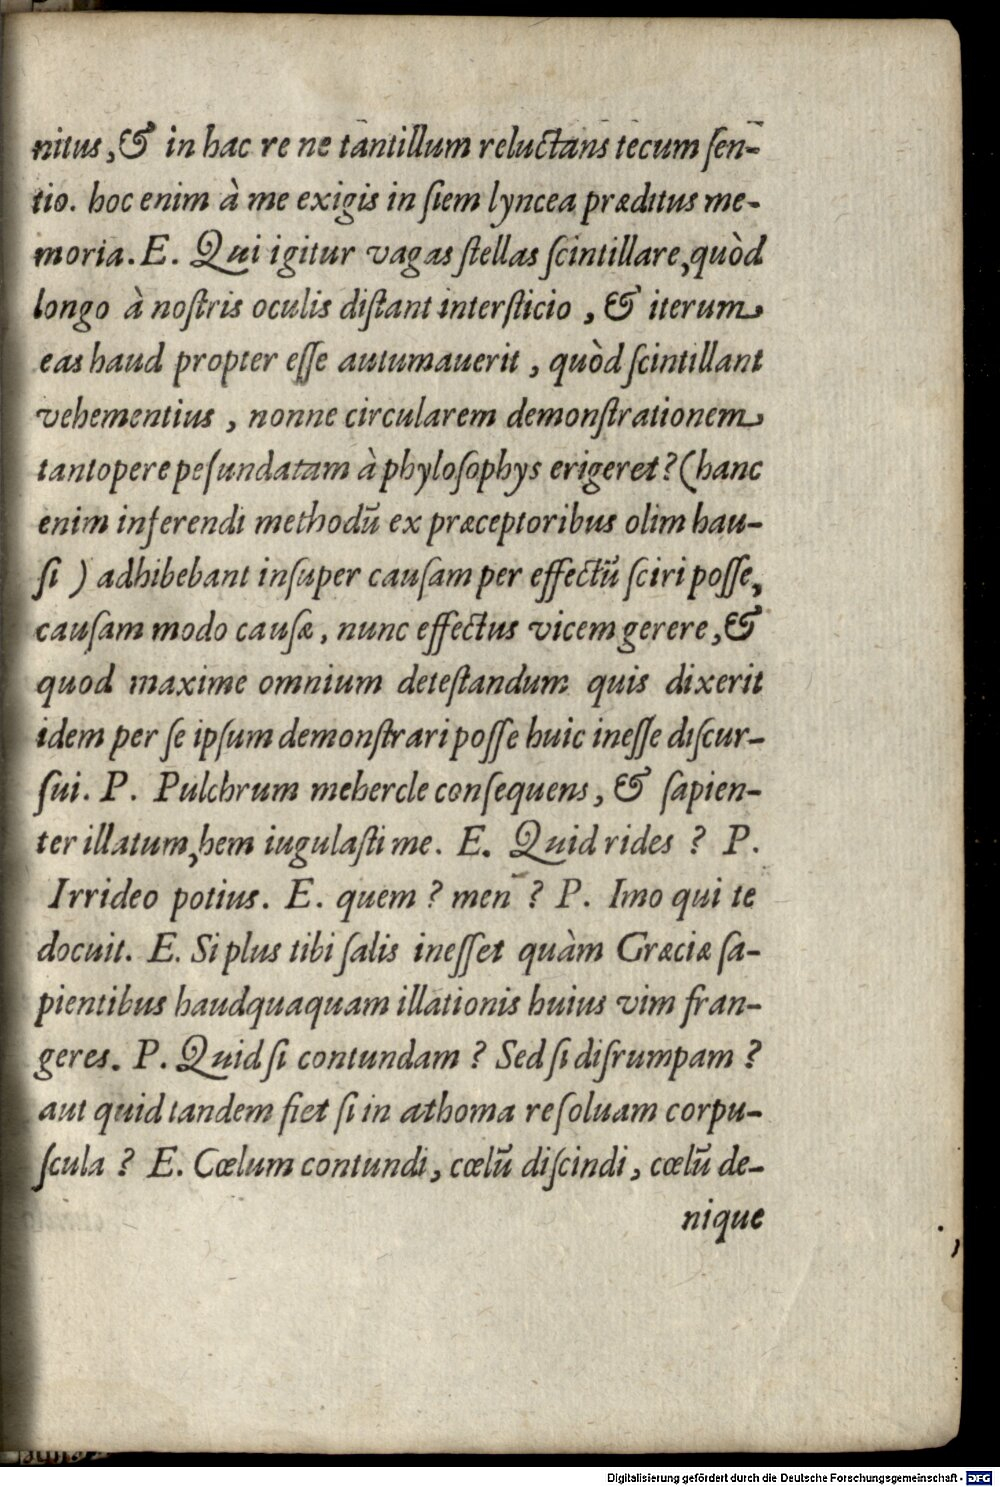 nitus, & in hac re ne tantillum reluctans tecum ſen-
tio. hoc enim à me exigis in ſiem lyncea præditus me-
moria. E. Qui igitur vagas ſtellas ſcintillare, quòd
longo à noſtris oculis diſtant interſticio, & iterum
eas haud propter eſſe autumauerit, quòd ſcintillant
vehementius, nonne circularem demonſtrationem
tantopere peſundatam à phyloſophys erigeret? (hanc
enim inferendi methodū ex præceptoribus olim hau-
ſi) adhibebant inſuper cauſam per effectū ſciri poſſe,
cauſam modo cauſæ, nunc effectus vicem gerere, &
quod maxime omnium deteſtandum quis dixerit
idem per ſe ipſum demonſtrari poſſe huic ineſſe diſcur-
ſui. P. Pulchrum mehercle conſequens, & ſapien-
ter illatum, hem iugulaſti me. E. Quid rides? P.
Irrideo potius. E. quem? men? P. Imo qui te
docuit. E. Si plus tibi ſalis ineſſet quàm Græciæ ſa-
pientibus haudquaquam illationis huius vim fran-
geres. P. Quid ſi contundam? Sed ſi diſrumpam?
aut quid tandem fiet ſi in athoma reſoluam corpu-
ſcula? E. Cœlum contundi, cœlū diſcindi, cœlū de-
nique
Digitalisierung gefördert durch die Deutsche Forschungsgemeinschaft - DFG